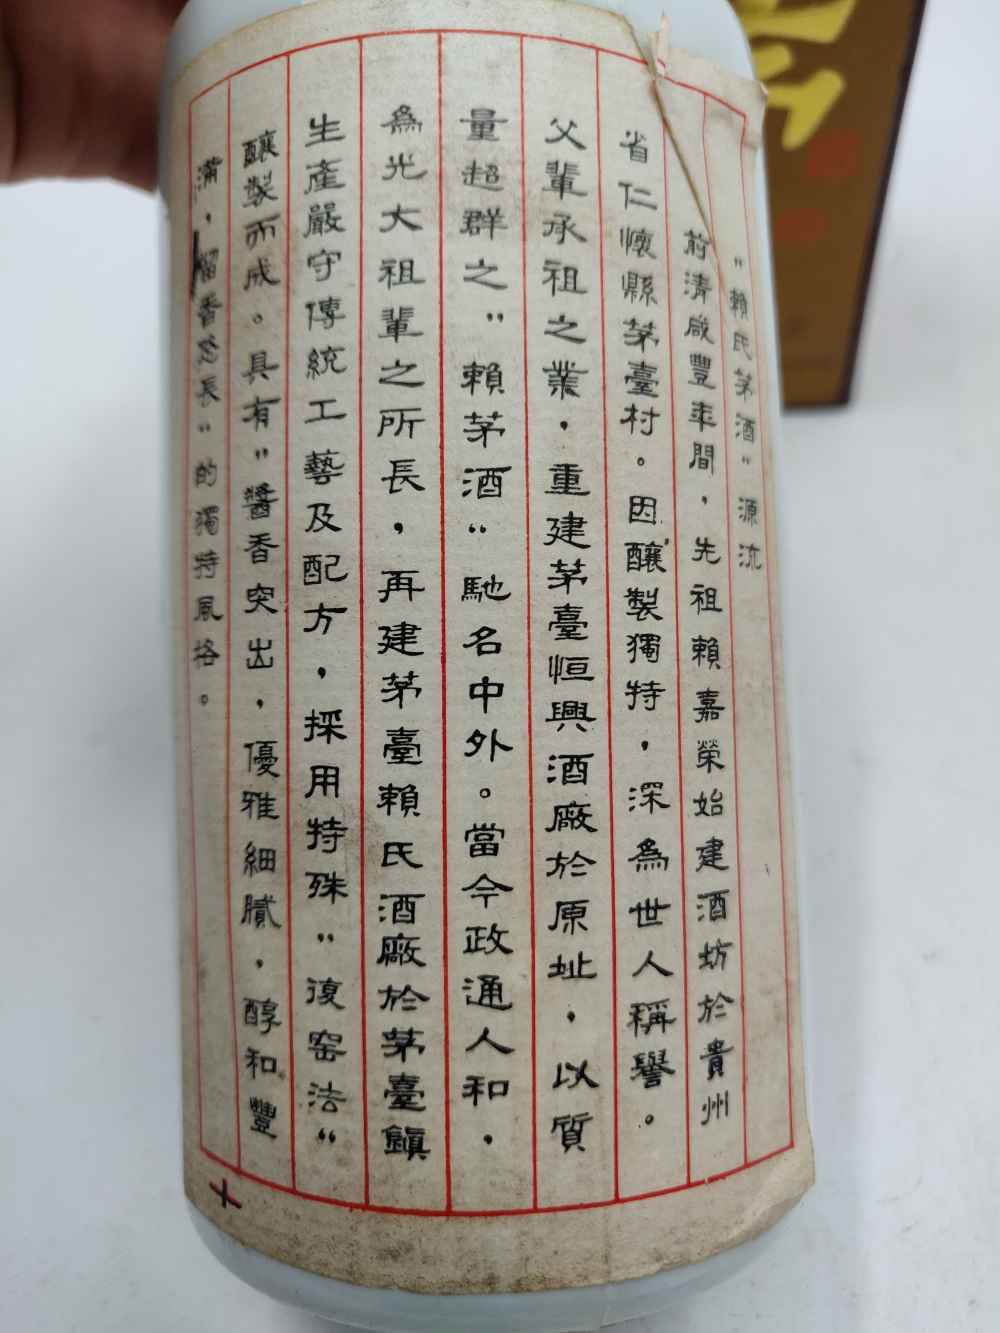 “賴氏茅酒”源流
前清咸豐年間，先祖賴嘉榮始建酒坊於貴州
省仁懷縣茅臺村。因釀製獨特，深為世人稱譽。
父輩承祖之業，重建茅臺恒興酒廠於原址，以質
量超群之“賴茅酒”馳名中外。當今政通人和，
為光大祖輩之所長，再建茅臺賴氏酒廠於茅臺鎮
生產嚴守傳統工藝及配方，採用特殊“復窑法”
釀製而成。具有“醬香突出，優雅細膩，醇和豐
滿，留香悠長”的獨特風格。